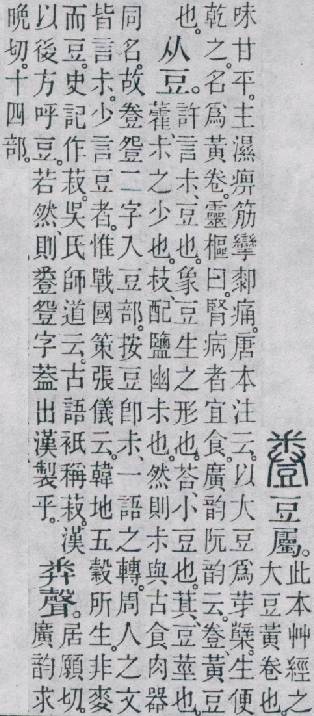 𧯦 豆屬。此本艸經之大豆黃卷也。
味甘平。主濕痹筋攣厀痛。唐本注云。以大豆爲芽櫱。生便
乾之。名爲黃卷。靈樞曰。腎病者宜食。廣韵阮韵云。𧯦、黃豆
也。从豆。許言尗豆也。象豆生之形也。荅、小豆也。萁、豆莖也。
藿、尗之少也。枝、配鹽幽尗也。然則尗與古食肉器
同名。故𧯦𧯡二字入豆部。按豆卽尗、一語之轉。周人之文
皆言尗。少言豆者。惟戰國策張儀云。韓地五穀所生。非麥
而豆。史記作菽。吳氏師道云。古語衹稱菽。漢
以後方呼豆。若然則𧯦𧯡字葢出漢製乎。
𢍏聲。居願切。廣韵求
晚切。十四部。